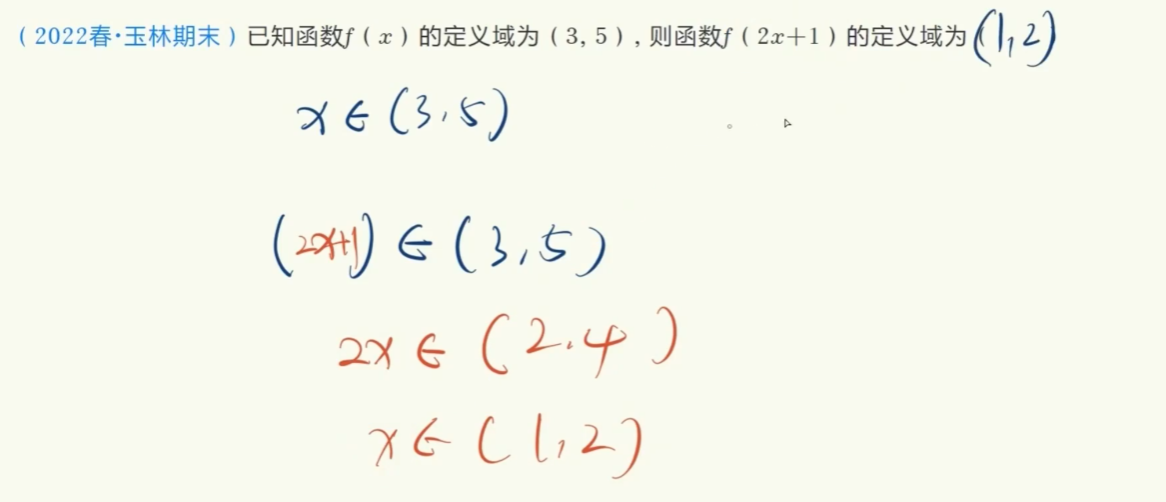 (2022春·玉林期末)已知函数f(x)的定义域为(3,5),则函数f(2x+1)的定义域为(1,2)
x∈(3,5)
(2x+1)∈(3,5)
2x∈(2.4)
x∈(1,2)